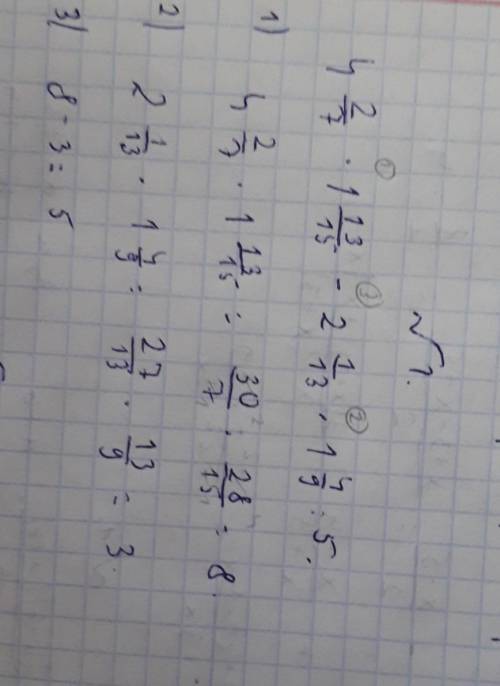 №1.
4 2/7 ①· 1 13/15 ③- 2 1/13 ②· 1 4/9 = 5.
1) 4 2/7 · 1 13/15 = 30/7 · 28/15 = 8.
2) 2 1/13 · 1 4/9 = 27/13 · 13/9 = 3.
3) 8 - 3 = 5